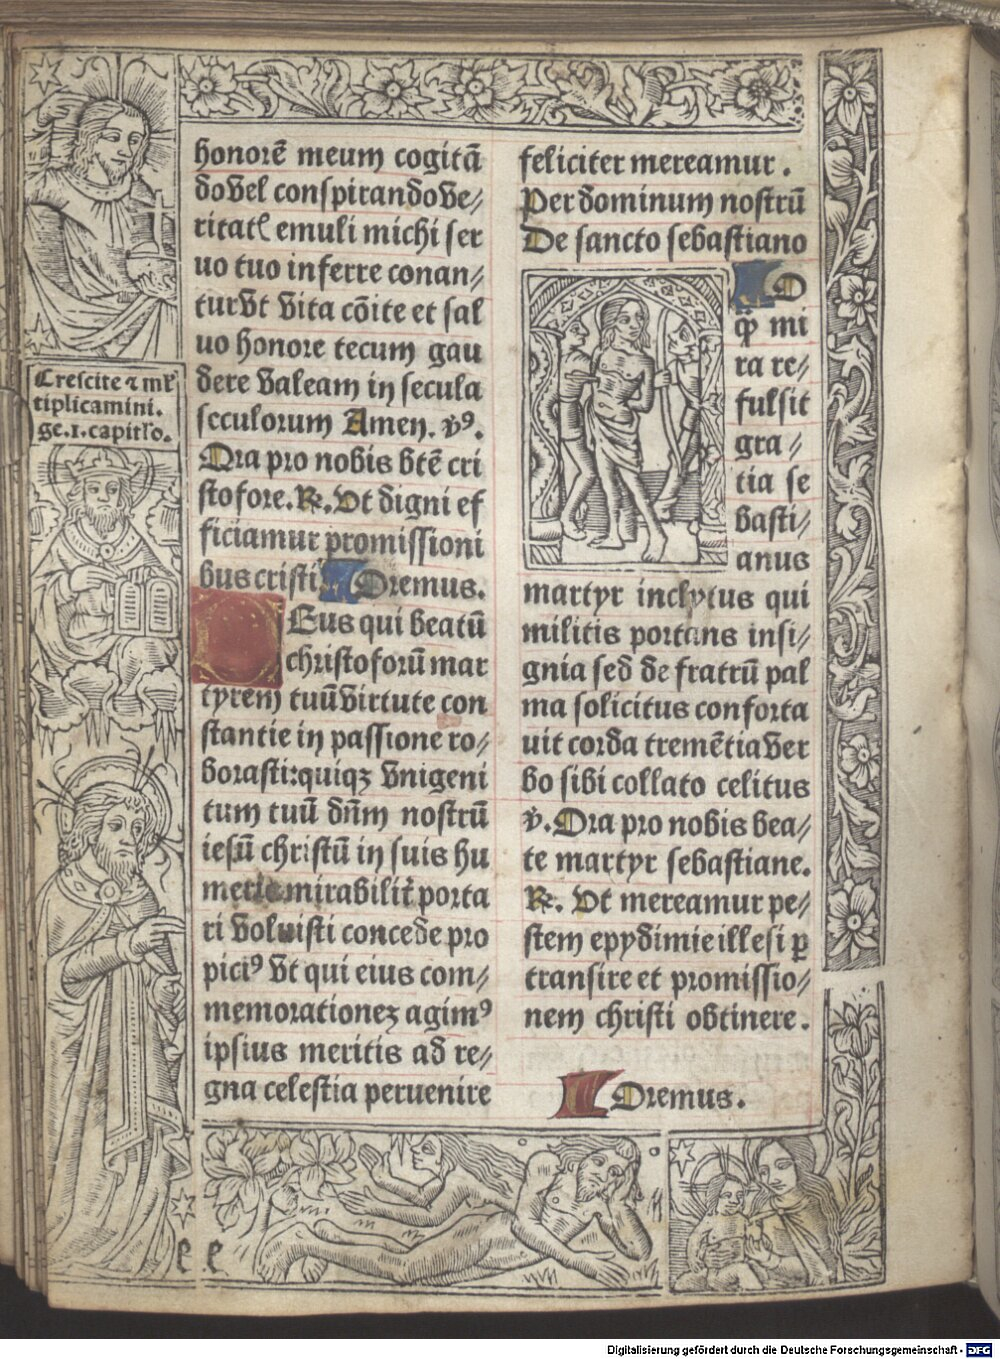 honorē meum cogitā
do vel conspirando ve⸗
ritatꝭ emuli michi ser
uo tuo inferre conan⸗
tur vt vita cōite et sal
uo honore tecum gau
dere valeam in secula
seculorum Amen. v̓ꝰ.
Ora pro nobis btē cri
stofore. ℟. Vt digni ef
ficiamur promissioni
bus cristi Oremus.
Eus qui beatū
christoforū mar
tyrem tuū virtute con
stantie in passione ro⸗
borasti: quiqꝫ vnigeni
tum tuū dn̄m nostrū
iesū christū in suis hu
meris mirabilit̄ porta
ri voluisti concede pro
piciꝰ vt qui eius com⸗
memorationeꝫ agimꝰ
ipsius meritis ad re⸗
gna celestia peruenire
feliciter mereamur.
Per dominum nostrū
De sancto sebastiano
O
q̄ mi
ra re⸗
fulsit
gra⸗
tia se
basti⸗
anus
martyr inclytus qui
militis portans insi⸗
gnia sed de fratrū pal
ma solicitus conforta
uit corda tremētia ver
bo sibi collato celitus
v̓. Ora pro nobis bea⸗
te martyr sebastiane.
℟. Vt mereamur pe⸗
stem epydimie illesi ꝑ
transire et promissio⸗
nem christi obtinere.
Oremus.
Crescite ⁊ ml̓
tiplicamini.
ge. 1. capitło.
e e
Digitalisierung gefördert durch die Deutsche Forschungsgemeinschaft - DFG